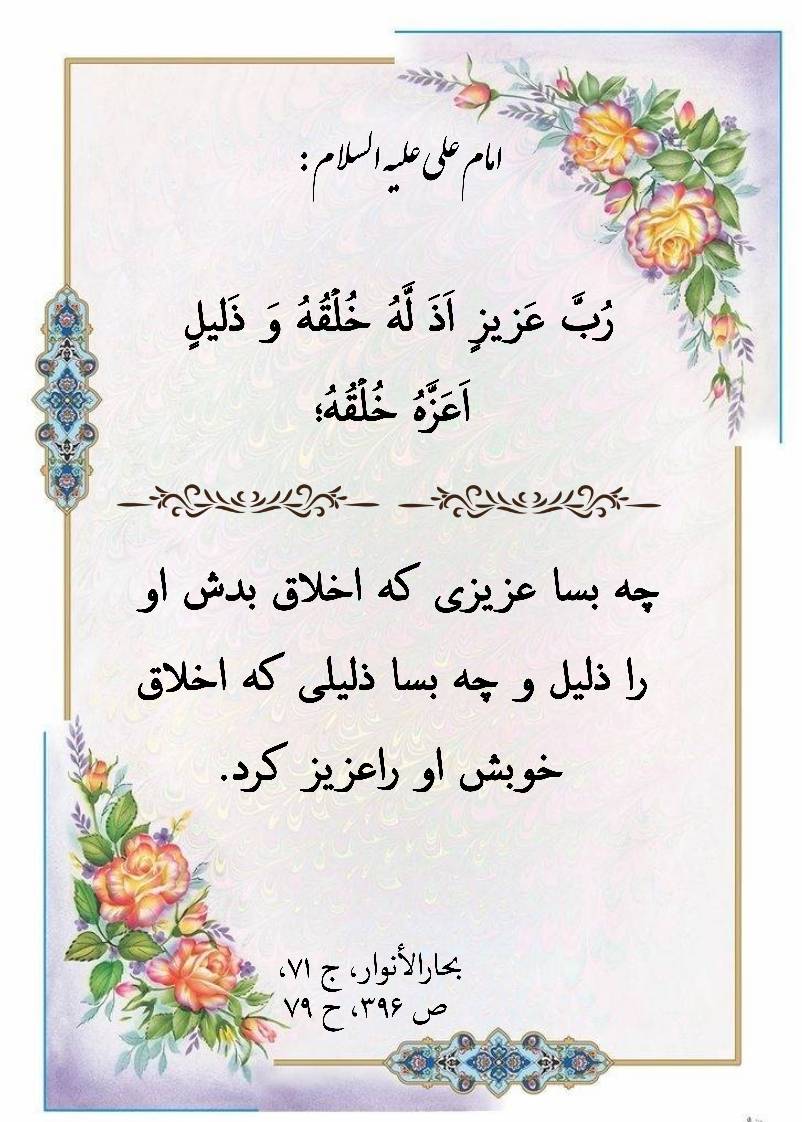 امام علی علیه السلام :
رُبَّ عَزیزٍ اَذَ لَّهُ خُلْقُهُ وَ ذَلیلٍ
اَعَزَّهُ خُلْقُهُ؛
چه بسا عزیزی که اخلاق بدش او
را ذلیل و چه بسا ذلیلی که اخلاق
خوبش او راعزیز کرد.
بحارالأنوار، ج ۷۱،
ص ۳۹۶، ح ۷۹